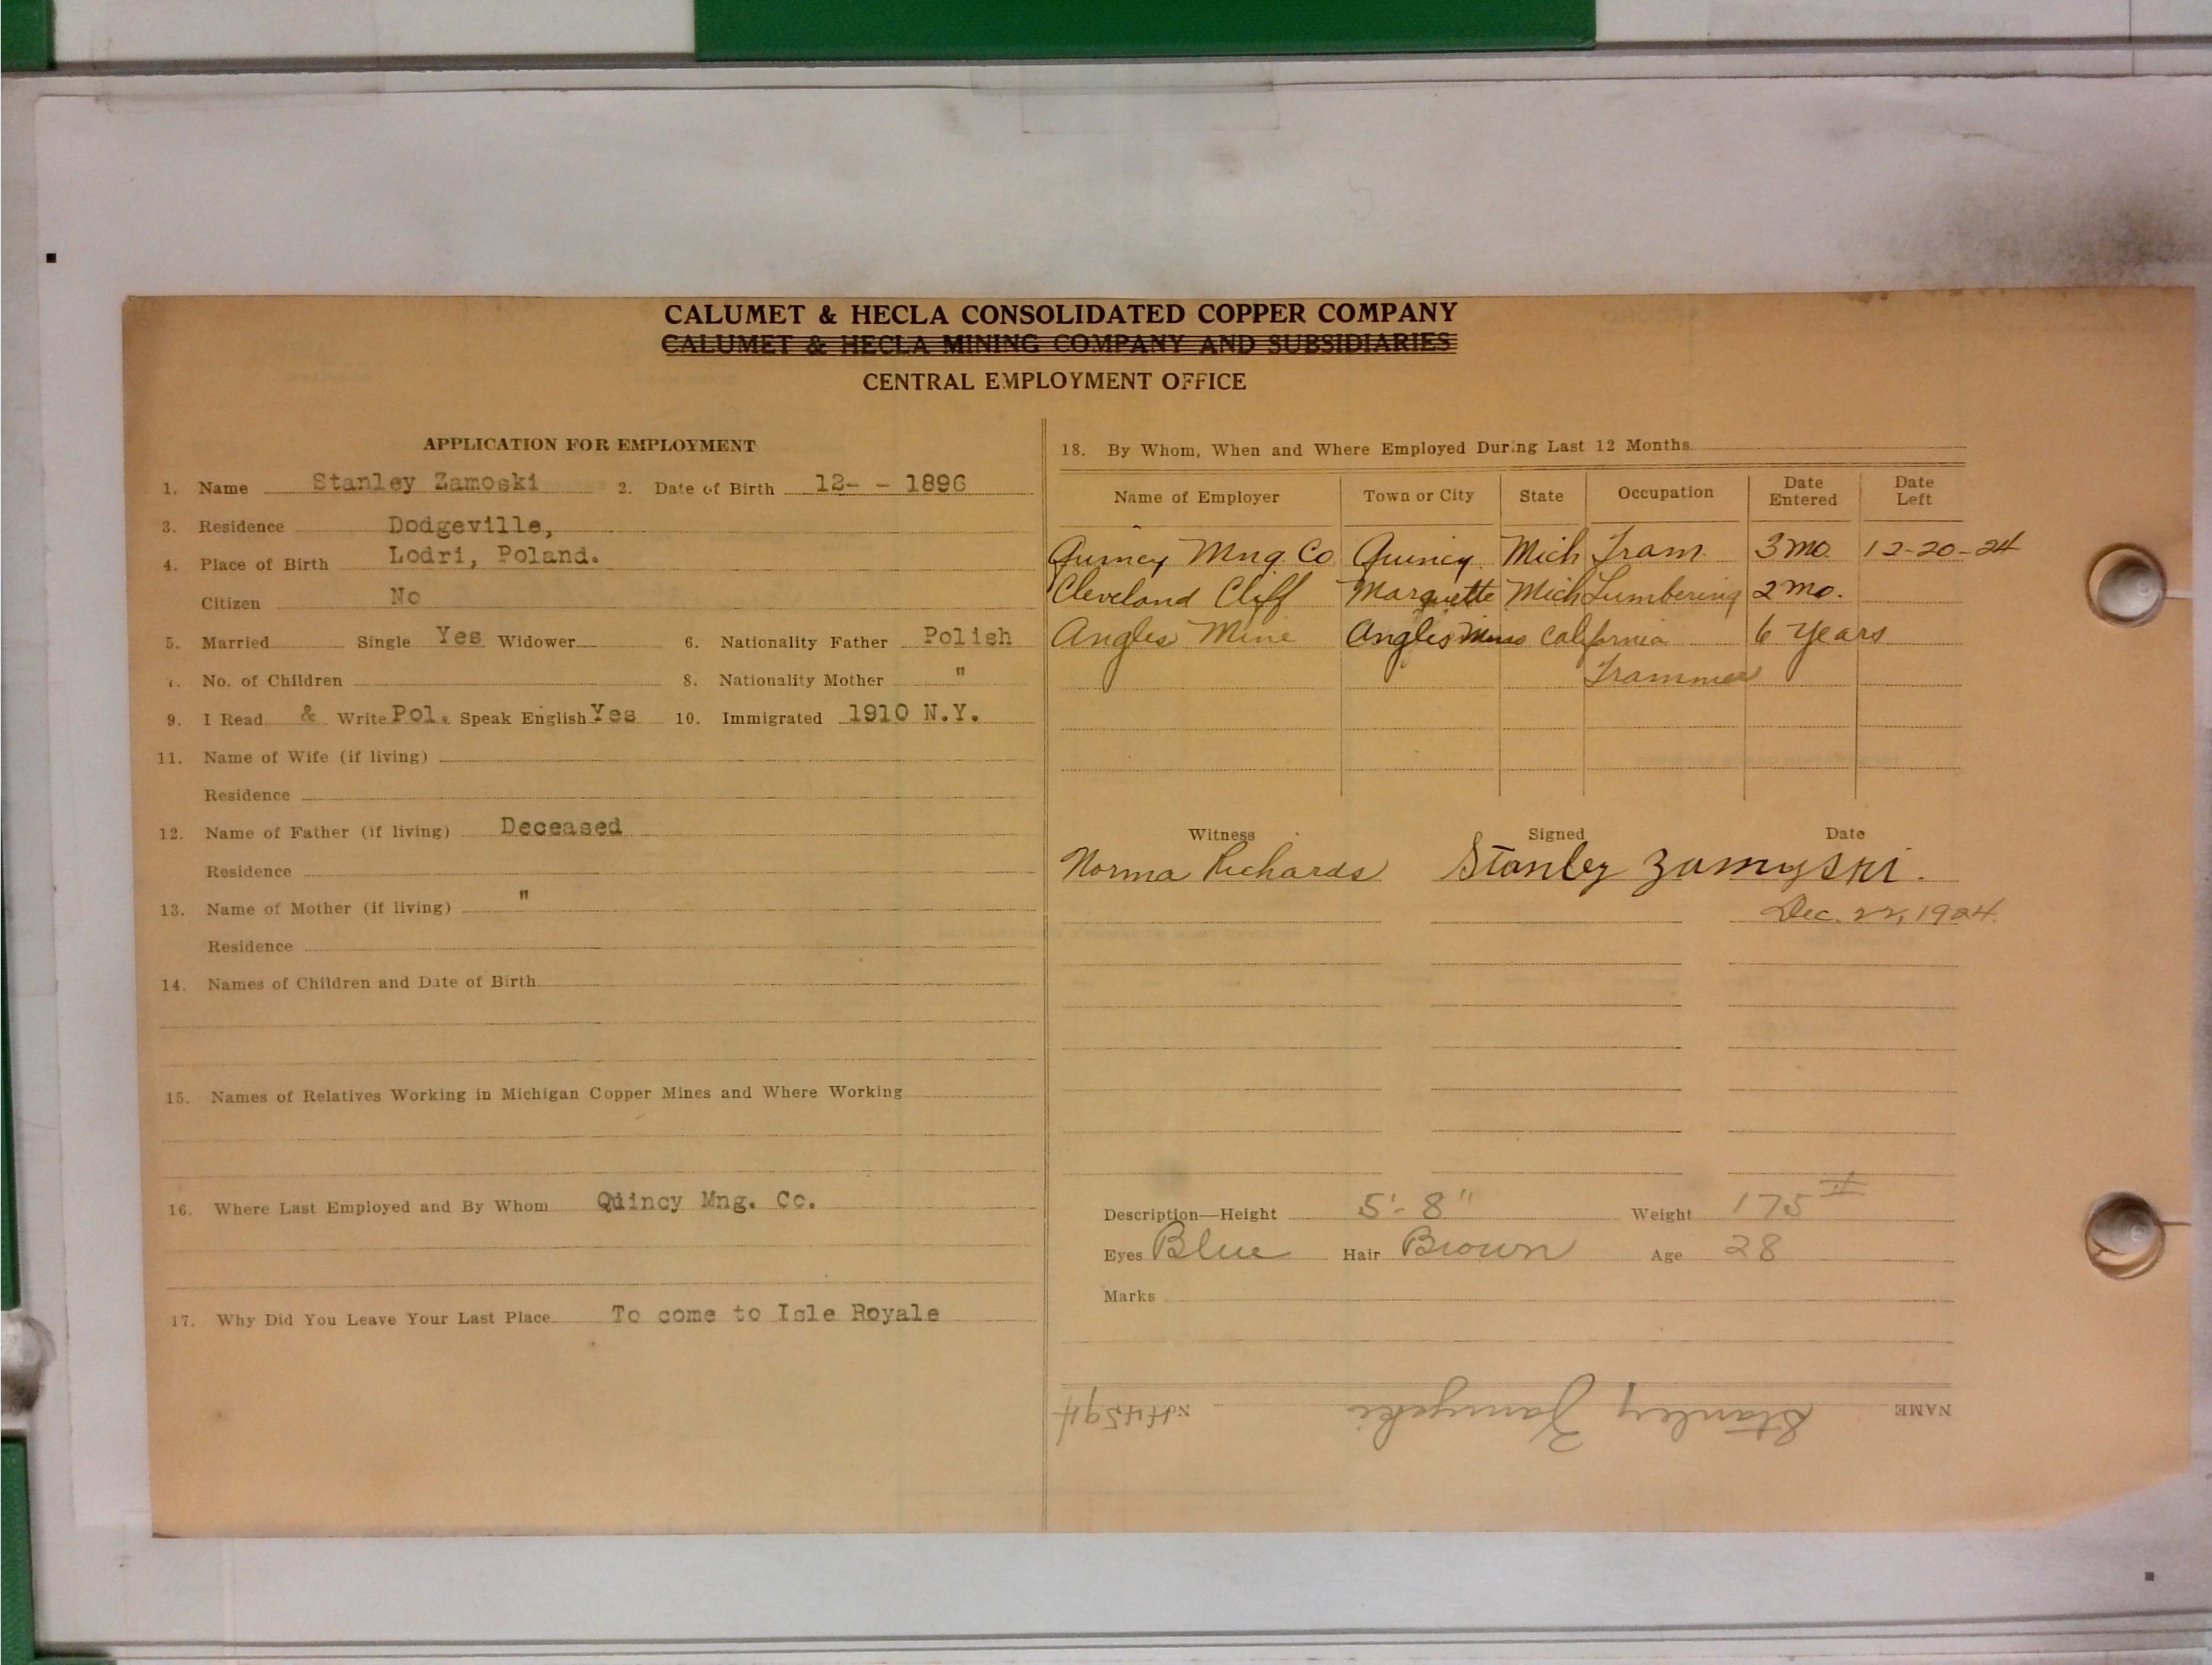 CALUMET & HECLA CONSOLIDATED COPPER COMPANY
CALUMET & HECLA MINING COMPANY AND SUBSIDIARIES
CENTRAL EMPLOYMENT OFFICE
APPLICATION FOR EMPLOYMENT
1. Name Stanley Zamoski 2. Date of Birth 12- - 1896
3. Residence Dodgeville,
4. Place of Birth Lodri, Poland.
Citizen No
5. Married Single Yes Widower 6. Nationality Father Polish
7. No. of Children 8. Nationality Mother "
9. I Read & Write Pol. Speak English Yes 10. Immigrated 1910 N.Y.
11. Name of Wife (if living)
Residence
12. Name of Father (if living) Deceased
Residence
13. Name of Mother (if living) "
Residence
14. Names of Children and Date of Birth
15. Names of Relatives Working in Michigan Copper Mines and Where Working
16. Where Last Employed and By Whom Quincy Mng. Co.
17. Why Did You Leave Your Last Place To come to Isle Royale
18. By Whom, When and Where Employed During Last 12 Months
Name of Employer Town or City State Occupation Date Entered Date Left
Quincy Mng. Co Quincy Mich Tram 3 mo. 12-20-24
Cleveland Cliff Marquette Mich Lumbering 2 mo.
Angles Mine Angles California 6 Years
Trammer
Witness Signed Date
Norma Richards Stanley Zamyski.
Dec. 22, 1924.
Description—Height 5'-8" Weight 175 #
Eyes Blue Hair Brown Age 28
Marks
NAME Stanley Zamyski No.